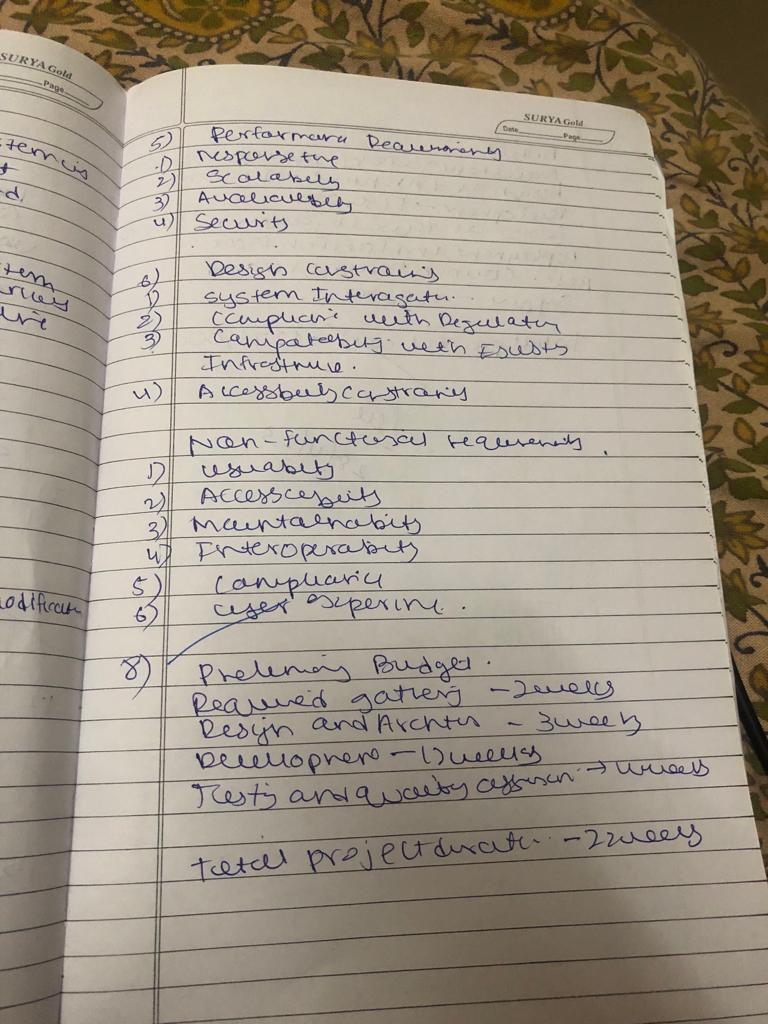 SURYA Gold
Page
stem
odificati
SURYA Gold
Date Page
5) Performance Requirements
1) response time
2) Scalability
3) Availability
4) Security
6) Design constraints
1) system Integration.
2) compliance with Regulatory
3) Compatability with Exists
Infrastructure.
4) Accessibility constraints
Non-functional requirements.
1) usuability
2) Accessability
3) Maintainability
4) Interoperability
5) Compliance
6) user experience.
8) Preliminary Budget.
Required gathering - 2weeks
Design and Architu - 3weeks
Development - 12weeks
Tests and quality assuran → 4weeks
total project duration - 22weeks